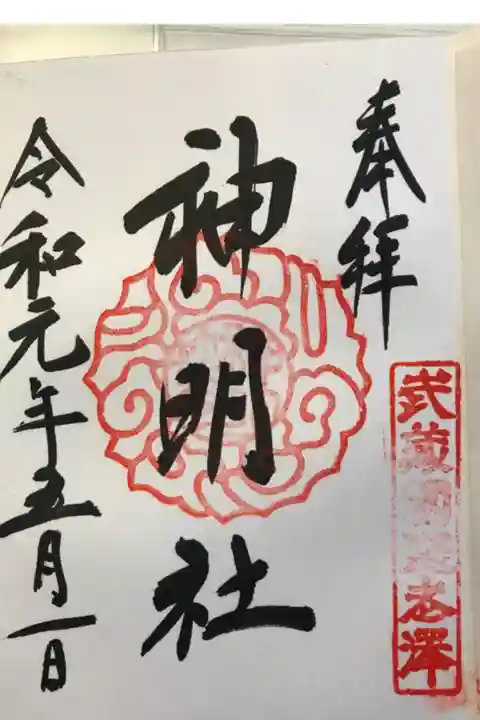 奉拝
武蔵
澤
神明社
令和元年五月一日